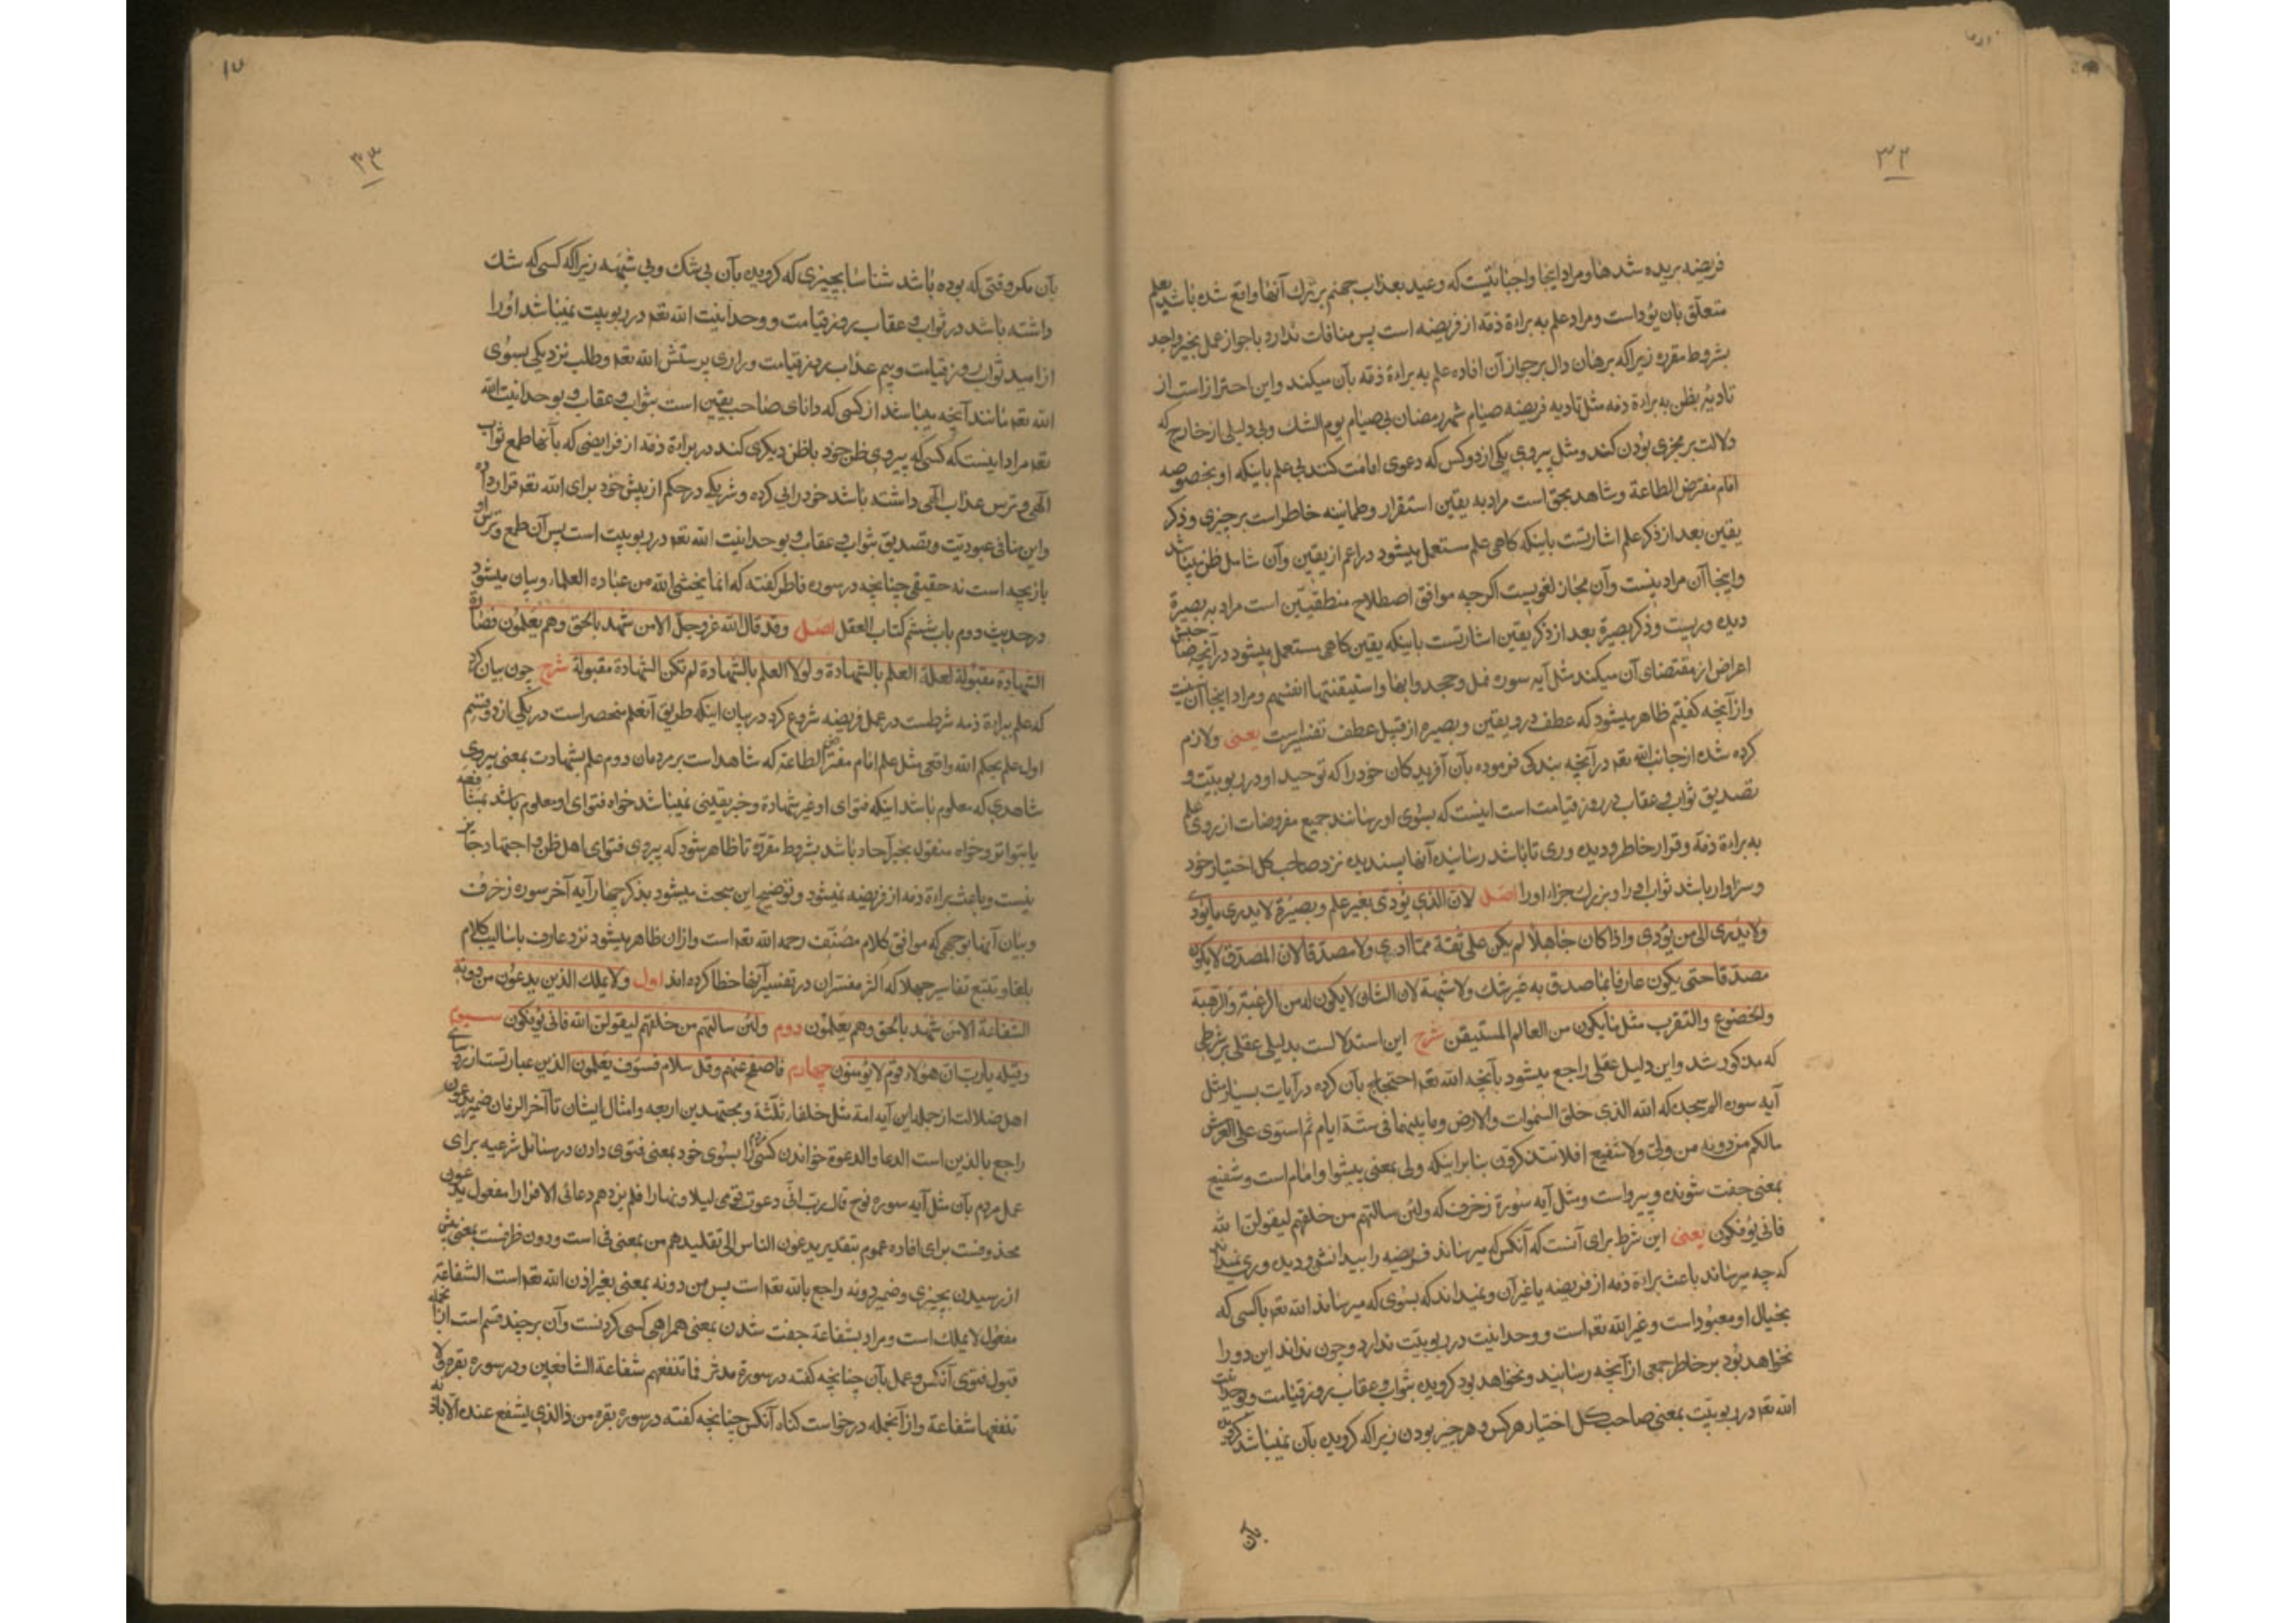 ۳۲
فریضه بریده شدها و مراد اینجا واجباتیست که وعید بعذاب جهنم بر ترک آنها واقع شده باشد بعلم
متعلّق بان یؤد است و مراد علم به براءة ذمّه از فریضه است پس منافات ندارد با جواز عمل بخبر واحد
بشروط مقرره زیرا که برهان دال بر جواز آن افاده علم به براءة ذمّه بآن میکند و این احتراز است از
تادیهٔ بظن به براءة ذمه مثل تادیه فریضه صیام شهر رمضان بی صیام یوم الشك و بی دلیلی از خارج که
دلالت بر مجزی بودن کند و مثل پیروی یکی از دو کس که دعوی امامت کنند بی علم باینکه او بخصوصه
امام مفترض الطاعة و شاهد بحق است مراد به یقین استقرار و طمانینه خاطر است بر چیزی و ذکر
یقین بعد از ذکر علم اشارتست باینکه کاهی علم مستعمل میشود در اعم از یقین و آن شامل ظن میباشد
و اینجا آن مراد نیست و آن مجاز لغویست اکرچه موافق اصطلاح منطقیّین است مراد به بصیرة
دیده وریست و ذکر بصیرة بعد از ذکر یقین اشارتست باینکه یقین کاهی مستعمل میشود در آنچه صاحبش
اعراض از مقتضای آن میکند مثل آیه سوره نمل وجحدوا بها واستیقنتها انفسهم و مراد اینجا آن نیست
و از آنچه کفتیم ظاهر میشود که عطف در و یقین و بصیره از قبیل عطف تفسیر است یعنی و لازم
کرده شده از جانب الله تعم در آنچه بندکی فرموده بآن آفریدکان خود را که توحید او در ربوبیّت و
تصدیق ثواب و عقاب در روز قیامت است اینست که بسوی او رسانند جمیع مفروضات از روی علم
به براءة ذمّه و قرار خاطر و دیده وری تا باشد رسانیدن آنها پسندیده نزد صاحب کل اختیار خود
و سزاوار باشد ثواب او را و بزرك جزاء او را اصل لان الذی یؤدّی بغیر علم وبصیرة لا یدری ما یؤدی
ولا یدری الی من یؤدی واذا کان جاهلا لم یکن علی ثقة ممّا ادی ولا مصدّقا لان المصدّق لا یکون
مصدّقا حتی یکون عارفا بما صدق به غیر شك ولا شبهة لان الشاك لا یکون له من الرغبة والرهبة
والخضوع والتقرب مثل ما یکون من العالم المستیقن شرح این استدلالست بدلیلی عقلی بر شرطی
که مذکور شد و این دلیل عقلی راجع میشود بآنچه الله تعم احتجاج بآن کرده در آیات بسیار مثل
آیه سوره الم سجده که الله الذی خلق السموات والارض وما بینهما فی ستة ایام ثم استوی علی العرش
مالکم من دونه من ولیّ ولا شفیع افلا تتذکرون بنابر اینکه ولی بمعنی پیشوا و امام است و شفیع
بمعنی جفت شونده و پیرو است و مثل آیه سورة زخرف که ولئن سالتهم من خلقهم لیقولن الله
فانی یؤفکون یعنی این شرط برای آنست که آنکس که میرساند فریضه را بیدانش و دیده وری نمیداند
که چه میرساند باعث براءة ذمه از فریضه یا غیر آن و نمیداند که بسوی که میرساند الله تعم یا کسی که
بخیال او معبود است و غیر الله تعم است و وحدانیت در ربوبیّت ندارد و چون نداند این دو را
نخواهد بود بر خاطر جمعی از آنچه رسانید و نخواهد بود کرویده بثواب و عقاب روز قیامت و بوحدانیّت
الله تعم در ربوبیّت بمعنی صاحب کل اختیار هر کس و هر چیز بودن زیرا که کرویده بآن نمیباشد کرویده
بآن
۱۷
۳۳
بآن مکر وقتی که بوده باشد شناسا بچیزی که کرویده بآن بی شك و بی شبهه زیرا که کسی که شك
داشته باشد در ثواب و عقاب روز قیامت و وحدانیت الله تعم در ربوبیت نمیباشد او را
از امید ثواب روز قیامت و بیم عذاب روز قیامت و زاری پرستش الله تعم و طلب نزدیکی بسوی
الله تعم مانند آنچه میباشد از کسی که دانای صاحب یقین است بثواب و عقاب و بوحدانیت الله
تعم مراد اینست که کسی که پیروی ظن خود یا ظن دیگری کند در براءة ذمّه از فرایضی که بآنها طمع ثواب
الهی و ترس عذاب الهی داشته باشد خودرایی کرده و شریکی در حکم از پیش خود برای الله تعم قرار داده
و این منافی عبودیّت و تصدیق بثواب و عقاب و بوحدانیت الله تعم در ربوبیت است پس آن طمع و ترس او
بازیچه است نه حقیقی چنانچه در سوره فاطر کفته که انما یخشی الله من عباده العلماء و بیان میشود
در حدیث دوم باب ششم کتاب العقل اصل وقد قال الله عز وجل الا من شهد بالحق وهم یعلمون فصارت
الشهادة مقبولة لعلة العلم بالشهادة ولولا العلم بالشهادة لم تکن الشهادة مقبولة شرح چون بیان کرد
که علم ببراءة ذمه شرطست در عمل فریضه شروع کرد در بیان اینکه طریق آنعلم منحصر است در یکی از دو قسم
اول علم بحکم الله واقعی مثل علم امام مفترض الطاعة که شاهد است بر مردمان دوم علم بشهادت بمعنی پیروی
شاهدی که معلوم باشد اینکه فتوای او غیر شهادة و خبر یقینی نمیباشد خواه فتوای او معلوم باشد بمشافهه
یا بتواتر و خواه منقول بخبر آحاد باشد بشروط مقررّه تا ظاهر شود که پیروی فتوای اهل ظن و اجتهاد جایز
نیست و باعث براءة ذمه از فریضه نمیشود و توضیح این مبحث میشود بذکر چهار آیه آخر سوره زخرف
و بیان آنها بوجهی که موافق کلام مصنّف رحمه الله تعم است و ازان ظاهر میشود نزد عارف باسالیب کلام
بلغا و تتبع تفاسیر جهلا که اکثر مفسّران در تفسیر آنها خطا کرده اند اول ولا یملك الذین یدعون من دونه
الشفاعة الا من شهد بالحق وهم یعلمون دوم ولئن سالتهم من خلقهم لیقولن الله فانی یؤفکون سیوم
وقیله یا رب ان هؤلاء قوم لا یؤمنون چهارم فاصفح عنهم وقل سلام فسوف یعلمون الذین عبارتست از رؤسای
اهل ضلالت از جمله این آیه امة مثل خلفاء ثلثة و مجتهدین اربعه و امثال ایشان تا آخر الزمان ضمیر یدعون
راجع بالذین است الدعا والدعوة خواندن کسی را بسوی خود بمعنی فتوی دادن در مسائل شرعیه برای
عمل مردم بآن مثل آیه سوره نوح قال رب انّی دعوت قومی لیلا ونهارا فلم یزدهم دعائی الا فرارا مفعول یدعون
محذوفست برای افاده عموم بتقدیر یدعون الناس الی تقلیدهم من بمعنی فی است و دون ظرفست بمعنی پیش
از رسیدن بچیزی و ضمیر دونه راجع بالله تعم است پس من دونه بمعنی بغیر اذن الله تعم است الشفاعة
مفعول لا یملك است و مراد بشفاعة جفت شدن بمعنی همراهی کسی کردنست و آن بر چند قسم است ازانجمله
قبول فتوی آنکس و عمل بآن چنانچه کفته در سورة مدثر فما تنفعهم شفاعة الشافعین و در سوره بقره ولا
تنفعها شفاعة و از آنجمله درخواست کناه آنکس چنانچه کفته در سوره بقره من ذا الذی یشفع عنده الا باذنه